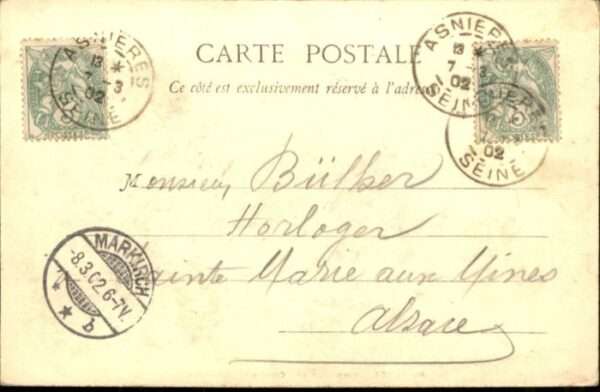 CARTE POSTALE
Ce côté est exclusivement réservé à l'adresse
ASNIERES
13
7 - 3
02
SEINE
ASNIERES
13
7 - 3
02
SEINE
ASNIERES
02
SEINE
Monsieur Bülher
Horloger
Sainte Marie aux Mines
Alsace
MARKIRCH
-8.3.02.6-7V.
* b